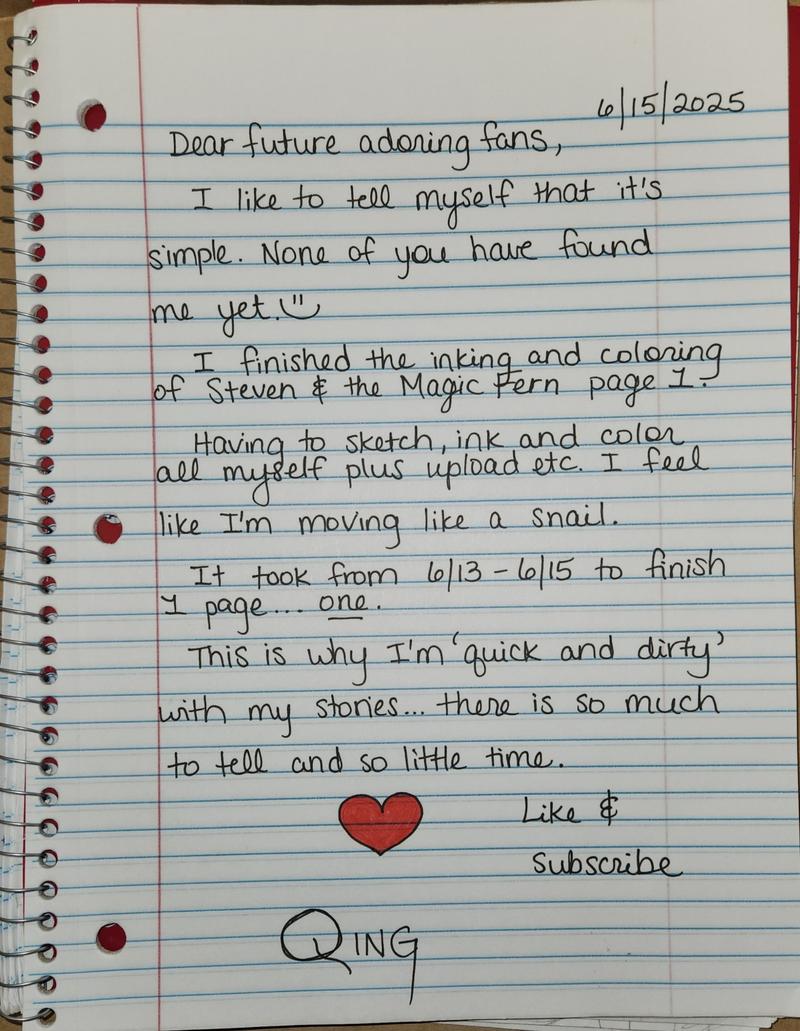 6/15/2025
Dear future adoring fans,
I like to tell myself that it's
simple. None of you have found
me yet.
I finished the inking and coloring
of Steven & the Magic Fern page 1.
Having to sketch, ink and color
all myself plus upload etc. I feel
like I'm moving like a snail.
It took from 6/13 - 6/15 to finish
1 page... one.
This is why I'm 'quick and dirty'
with my stories... there is so much
to tell and so little time.
Like &
Subscribe
QING